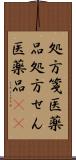 処方箋医薬
品処方せん
医薬品